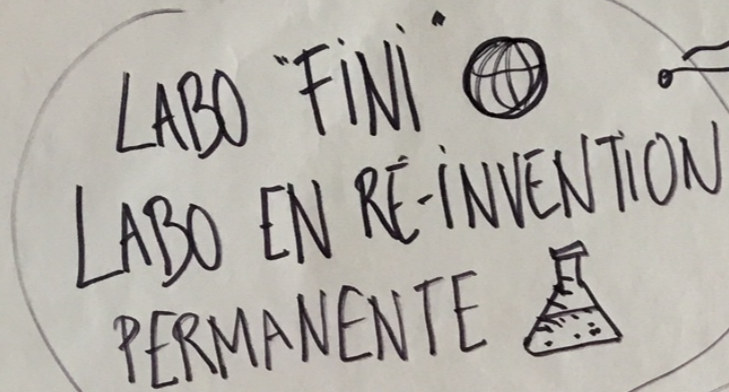 LABO "FINI"
LABO EN RÉ-INVENTION
PERMANENTE